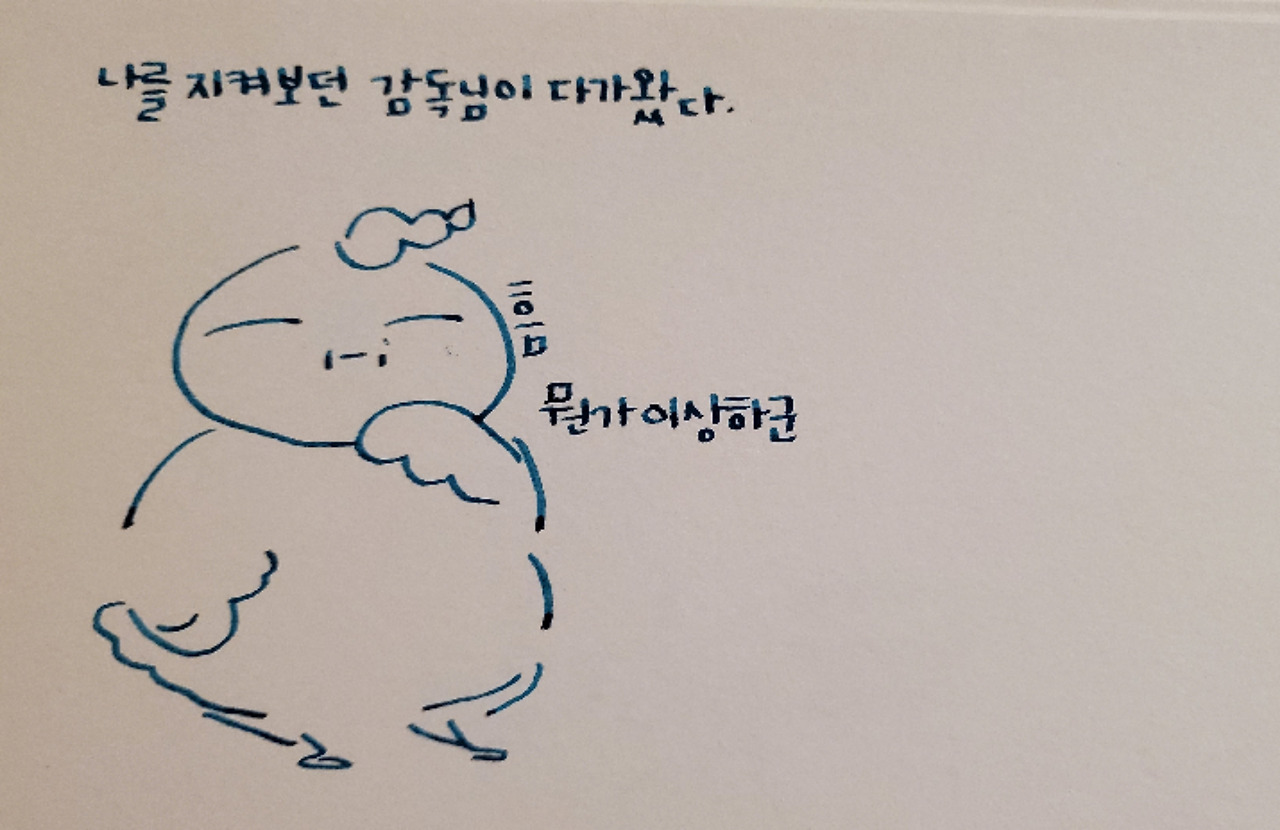 나를 지켜보던 감독님이 다가왔다.
흐음
뭔가 이상하군